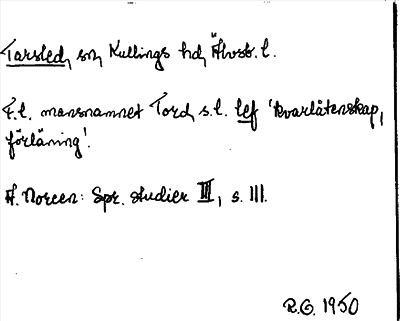 Tarsled, sn, Kullings hd, Älvsb. l.
F.l. mansnamnet Tord, s.l. lef 'kvarlåtenskap,
förläning'.
A. Noreen: Spr. studier III, s. 111.
R.G. 1950